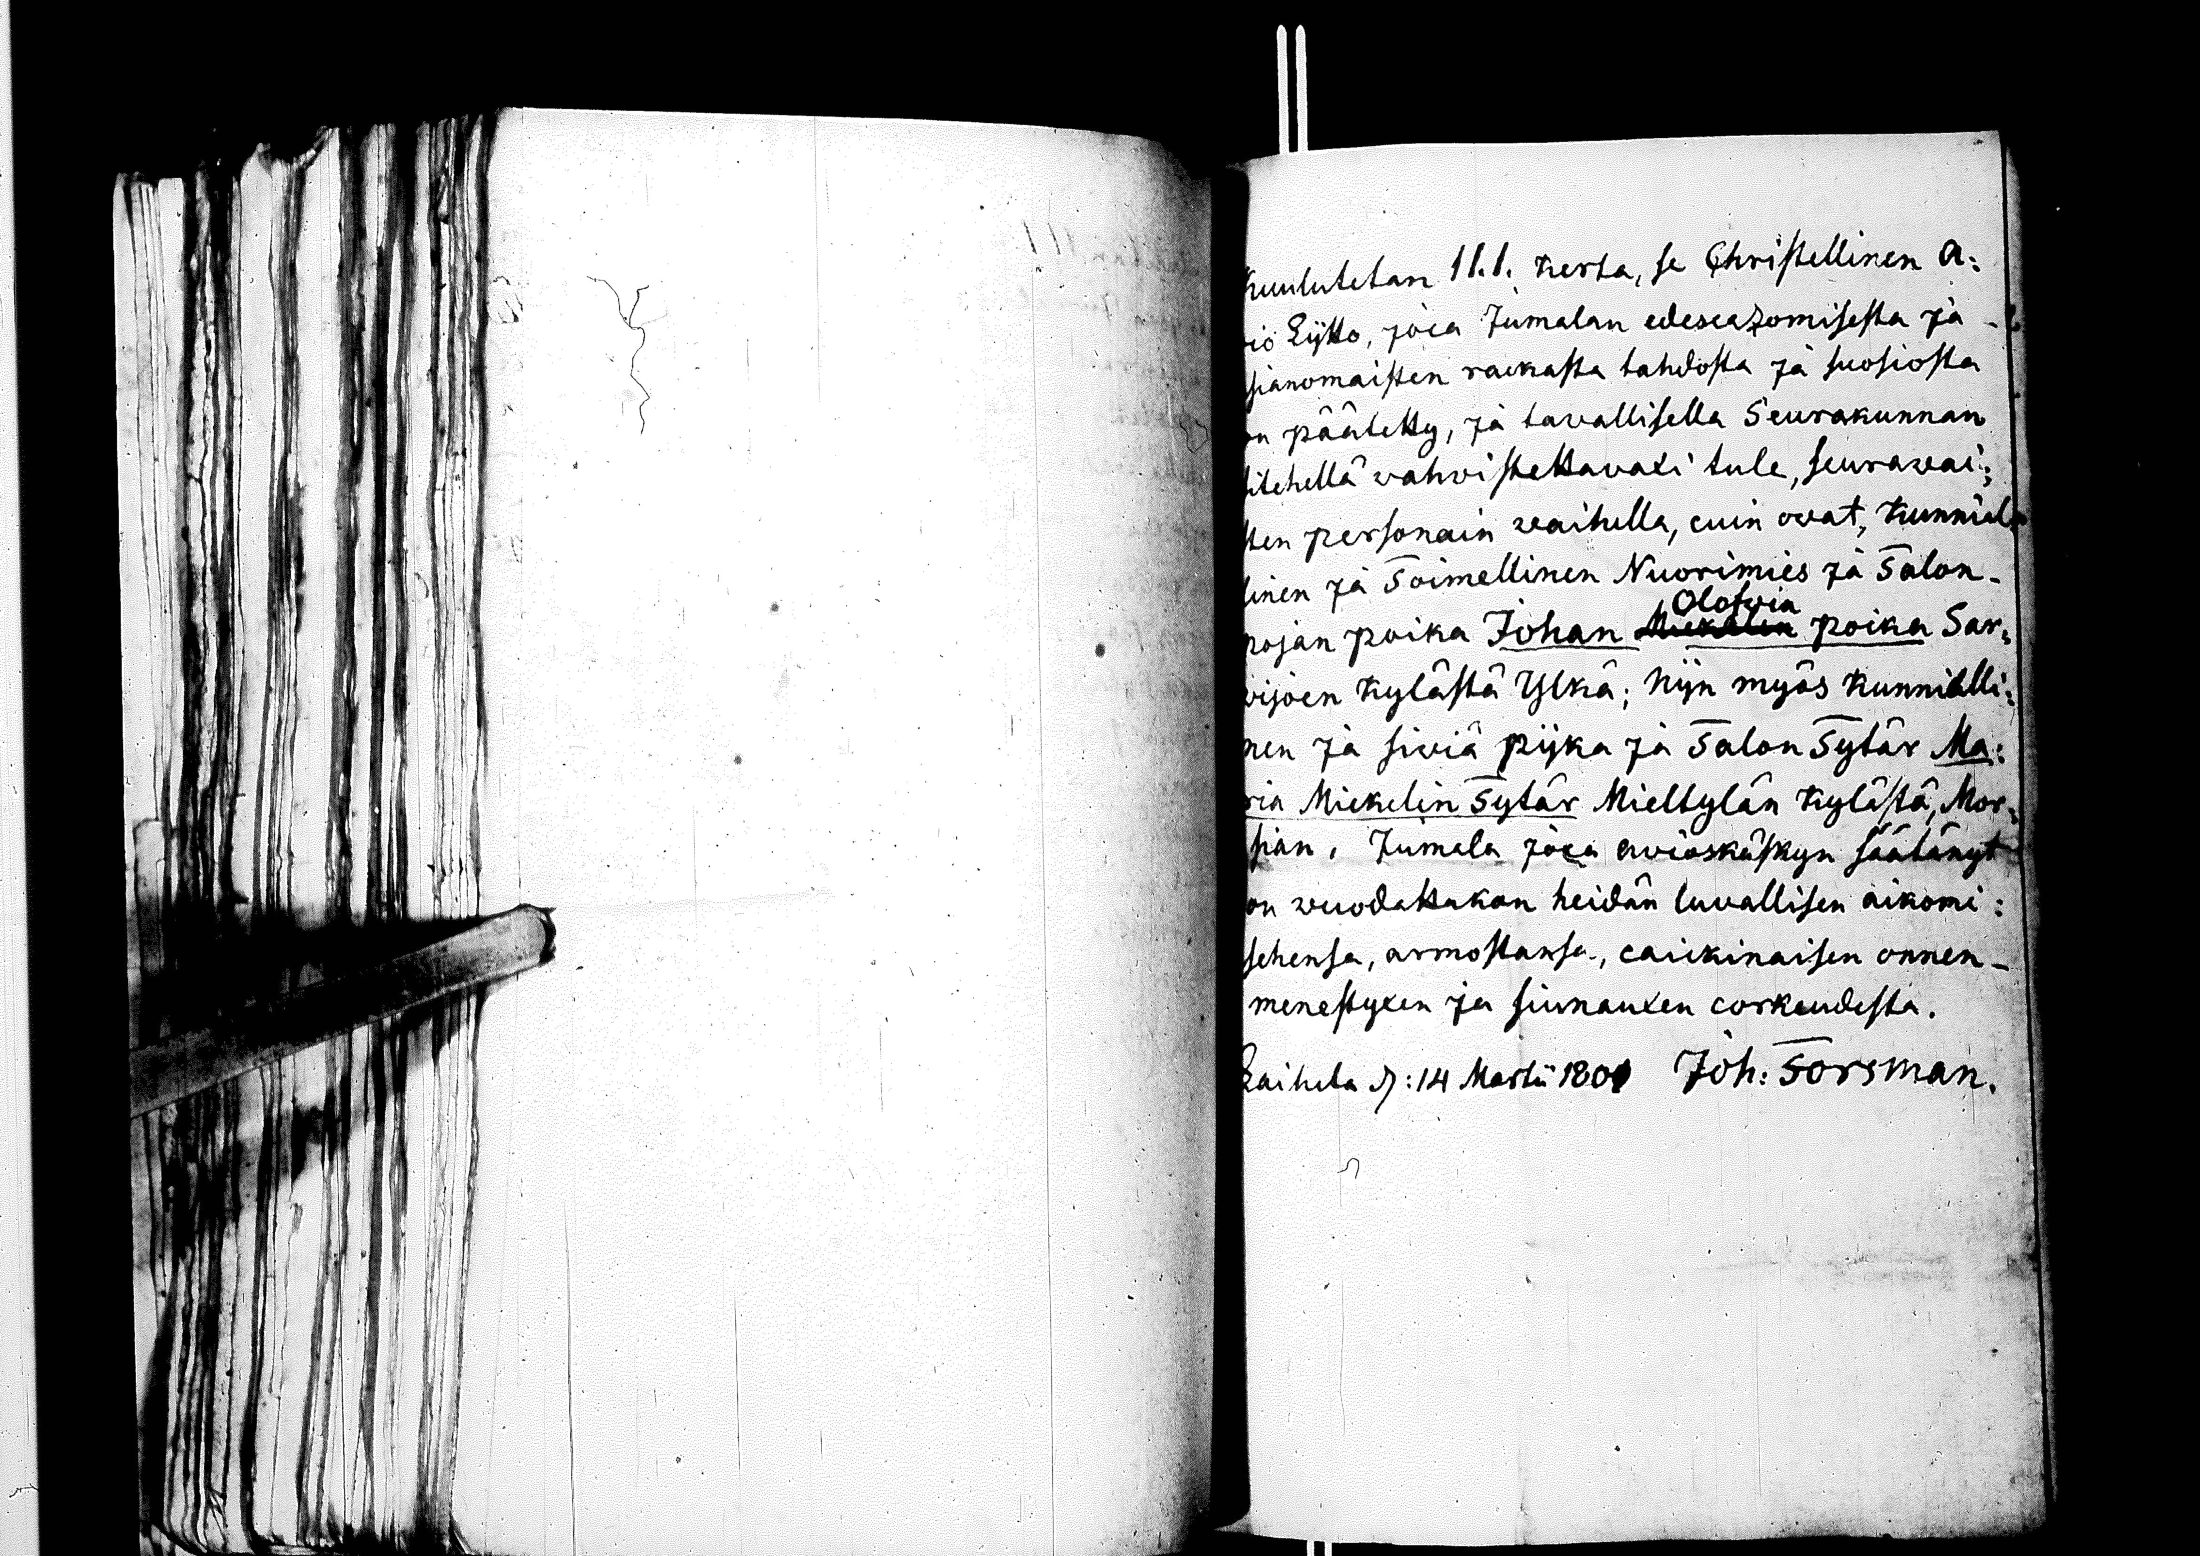 Kuulutetan 1.1.1. kerta, se Christellinen A:
vio Lijtto, joca Jumalan edescazomisesta ja
asianomaisten rackasta tahdosta ja suosiosta
on päätetty, ja tavallisella Seurakunnan
sitehellä vahvistettavaxi tule, seuravai:
sten personain vaihella, cuin ovat, kunnial
linen ja Toimellinen Nuorimies ja Talon-
pojan poika Johan Olofvin poika Sar:
vijoen kylästä Ylkä; Nijn myös kunnialli:
nen ja siviä pijka ja Talon Tytär Ma:
ria Mickelin Tytär Mieltylän kylästä, Mor:
sian, Jumala joca avioskäskyn säätänyt
on vuodattakon heidän luvallisen aikomi:
sehensa, armostansa, caickinaisen onnen-
menestyxen ja siunauxen corkeudesta.
Laihela D: 14 Martii 1801 Joh: Forsman.